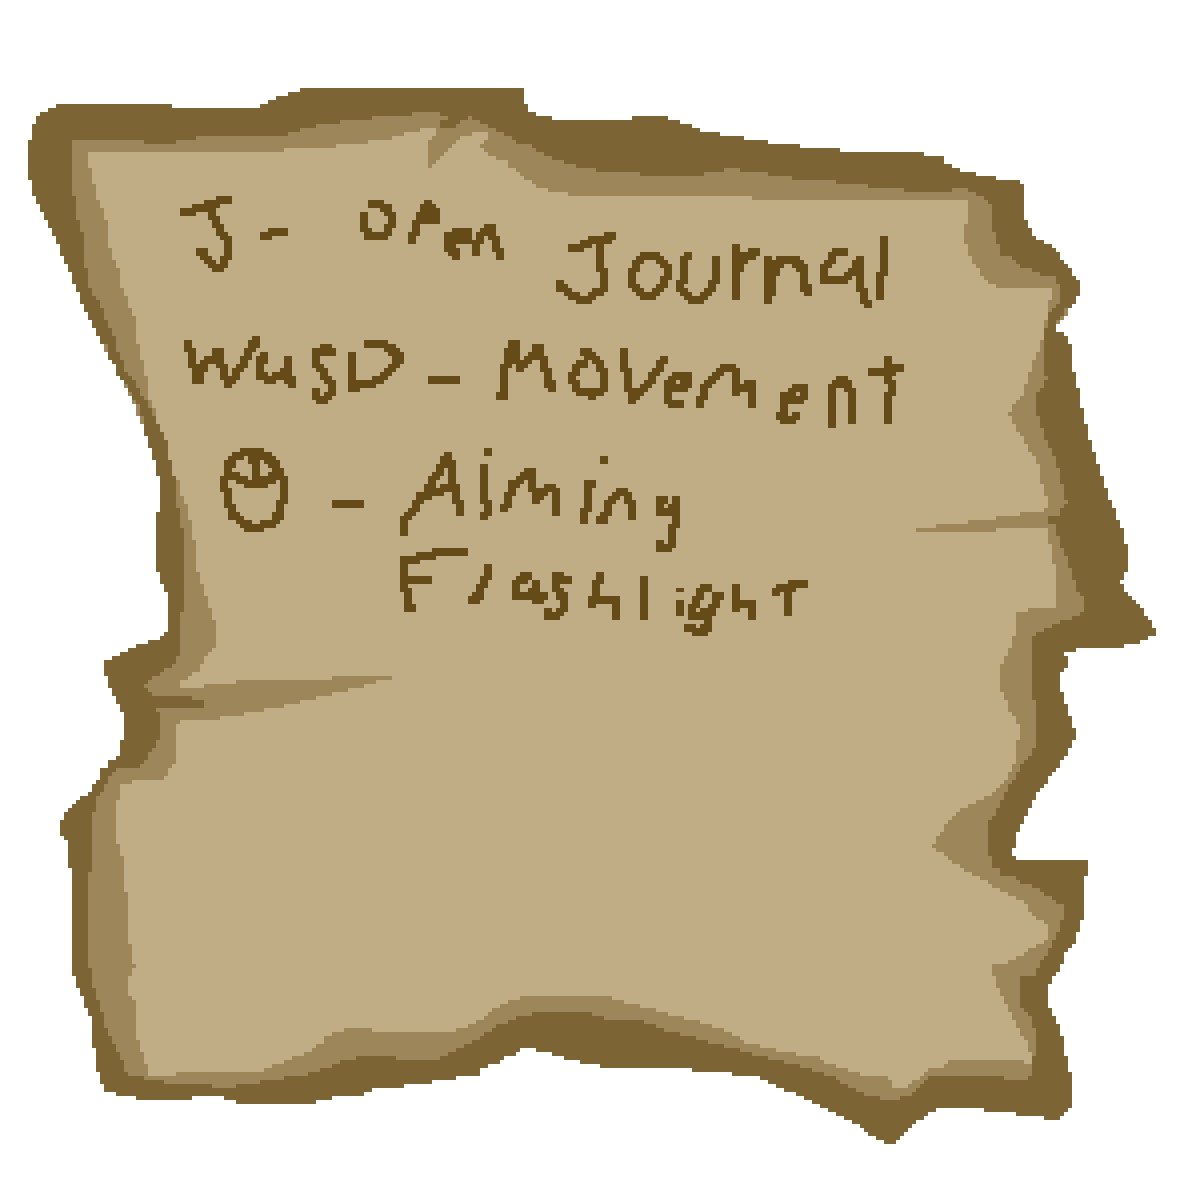 J - open Journal
WasD - Movement
- Aiming
Flashlight